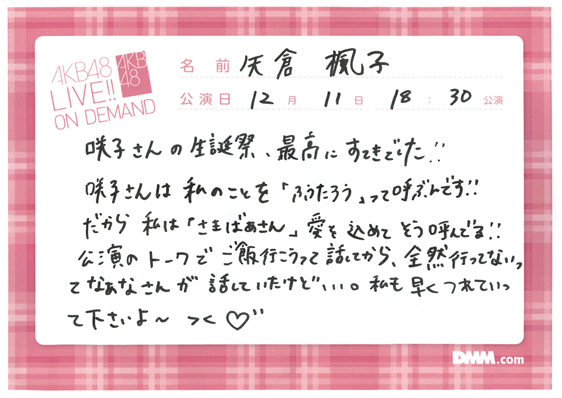 AKB48
LIVE!!
ON DEMAND
AKB
48
名前 矢倉 楓子
公演日 12月 11日 18:30 公演
咲子さんの生誕祭、最高にすてきでした!!
咲子さんは私のことを「ふうたろう」って呼ぶんです!!
だから私は「さきばあさん」愛を込めてそう呼んでる!!
公演のトークでご飯行こうって話してから、全然行ってないっ
てなぁなさんが話していたけど、、、。私も早くつれていっ
て下さいよ〜 つく♡"
DMM.com